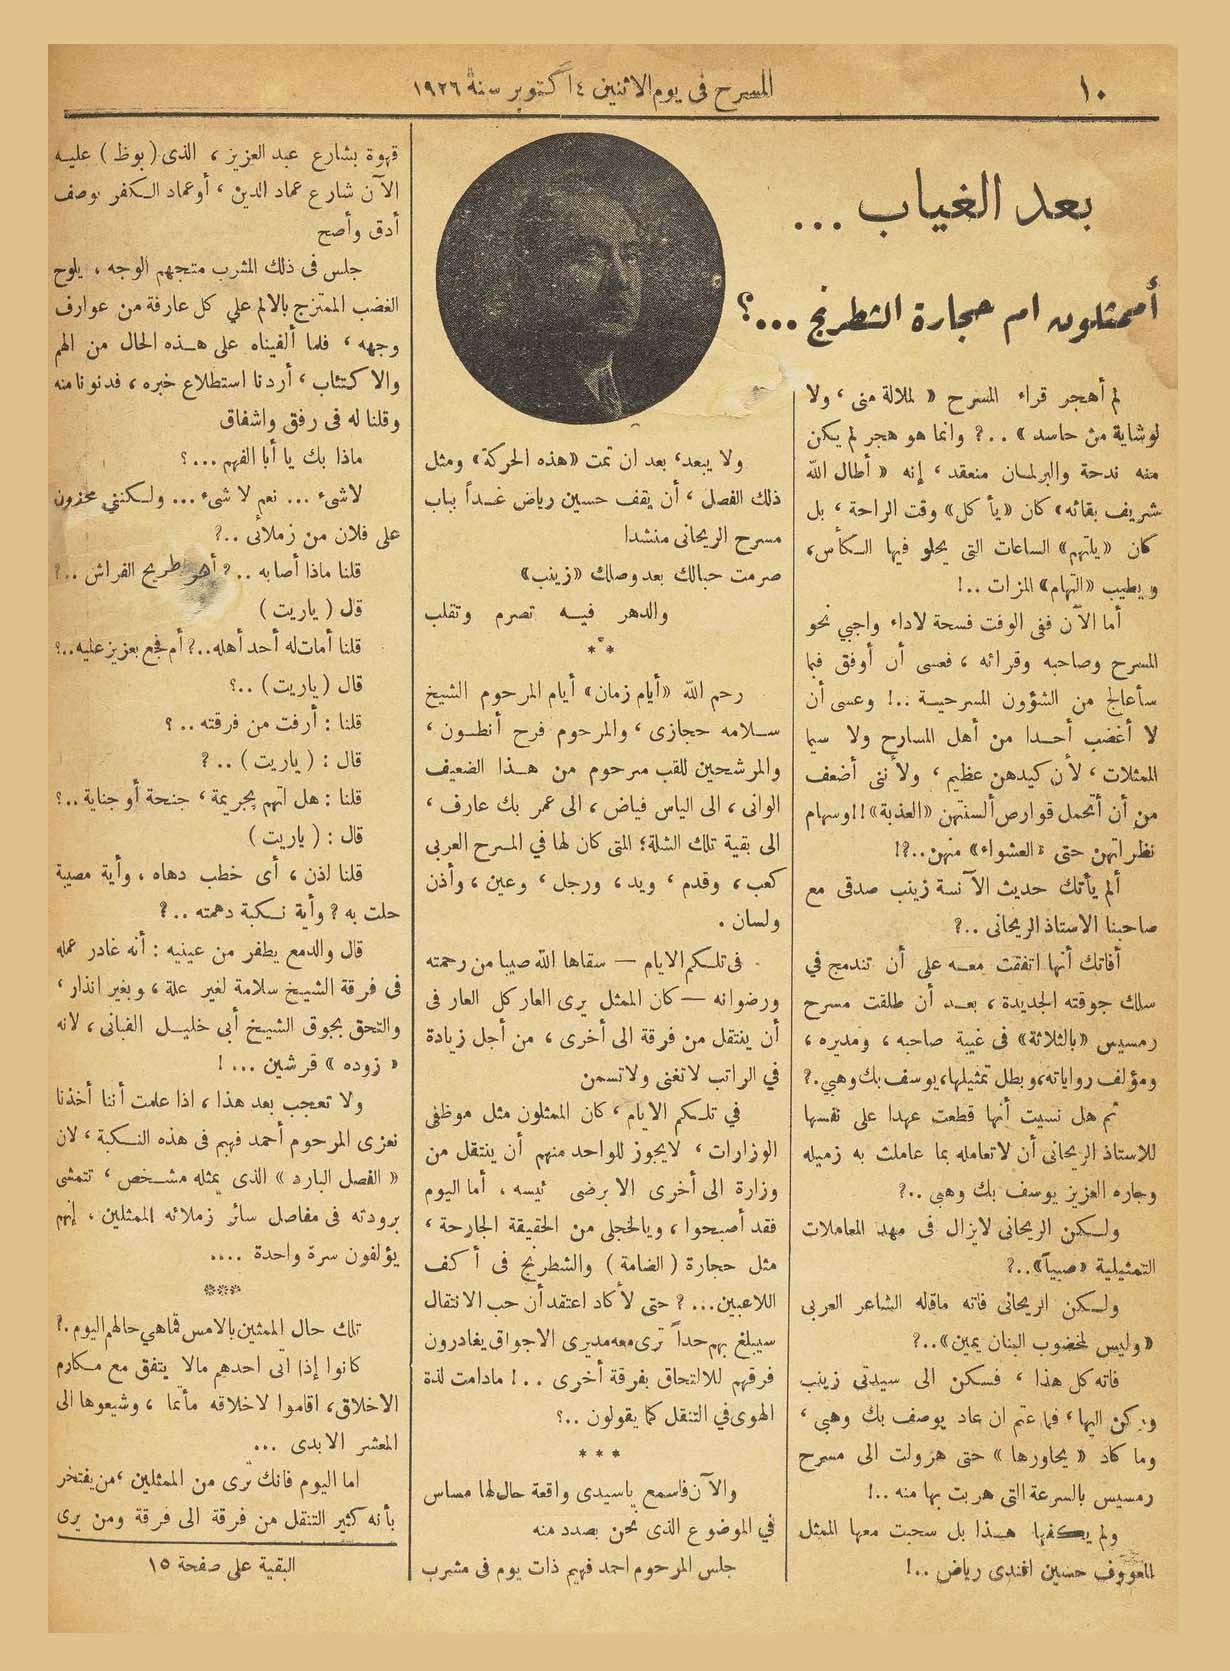 ١٠
المسرح فى يوم الاثنين ٤ اكتوبر سنة ١٩٢٦
بعد الغياب ...
أممثلون ام حجارة الشطرنج ...؟
لم أهجر قراء المسرح « لملالة منى ، ولا
لوشاية من حاسد » ..؟ وانما هو هجر لم يكن
منه ندحة والبرلمان منعقد ، إنه « أطال الله
شريف بقائه » كان «يأكل» وقت الراحة ، بل
كان «يلتهم» الساعات التى يحلو فيها الكأس ،
ويطيب «التهام» المزات ..!
أما الآن ففى الوقت فسحة لاداء واجبي نحو
المسرح وصاحبه وقرائه ، فعسى أن أوفق فيما
سأعالج من الشؤون المسرحية ..! وعسى أن
لا أغضب أحدا من أهل المسارح ولا سيما
الممثلات ، لأن كيدهن عظيم ، ولأننى أضعف
من أن أتحمل قوارص ألسنتهن «العذبة»!! وسهام
نظراتهن حتى «العشواء» منهن ..؟!
ألم يأتك حديث الآنسة زينب صدقى مع
صاحبنا الاستاذ الريحانى ..؟
أفاتك أنها اتفقت معه على أن تندمج في
سلك جوقته الجديدة ، بعد أن طلقت مسرح
رمسيس «بالثلاثة» فى غيبة صاحبه ، ومديره ،
ومؤلف رواياته ، وبطل تمثيلها ، يوسف بك وهبي .؟
ثم هل نسيت أنها قطعت عهدا على نفسها
للاستاذ الريحانى أن لا تعامله بما عاملت به زميله
وجاره العزيز يوسف بك وهبي ..؟
ولكن الريحانى لا يزال فى مهد المعاملات
التمثيلية «صبياً» ..؟
ولكن الريحانى فاته ماقاله الشاعر العربى
«وليس لمخضوب البنان يمين» ..؟
فاته كل هذا ، فسكن الى سيدتى زينب
وركن اليها ، فما عتم ان عاد يوصف بك وهبى ،
وما كاد « يحاورها » حتى هرولت الى مسرح
رمسيس بالسرعة التى هربت بها منه ..!
ولم يكفها هذا بل سحبت معها الممثل
المعروف حسين افندى رياض ..!
ولا يبعد ، بعد ان تمت «هذه الحركة» ومثل
ذلك الفصل ، أن يقف حسين رياض غداً بباب
مسرح الريحانى منشدا
صرمت حبالك بعد وصلك «زينب»
والدهر فيه تصرم وتقلب
* * *
رحم الله «أيام زمان» أيام المرحوم الشيخ
سلامه حجازى ، والمرحوم فرح أنطون ،
والمرشحين للقب مرحوم من هذا الضعيف
الوانى ، الى الياس فياض ، الى عمر بك عارف ،
الى بقية تلك الشلة ؛ التى كان لها في المسرح العربى
كعب ، وقدم ، ويد ، ورجل ، وعين ، وأذن
ولسان .
فى تلكم الايام — سقاها الله صيبا من رحمته
ورضوانه — كان الممثل يرى العار كل العار فى
أن ينتقل من فرقة الى أخرى ، من أجل زيادة
في الراتب لا تغنى ولا تسمن
في تلكم الايام ، كان الممثلون مثل موظفى
الوزارات ، لا يجوز للواحد منهم أن ينتقل من
وزارة الى أخرى الا برضى ئيسه ، أما اليوم
فقد أصبحوا ، ويالخجلى من الحقيقة الجارحة ،
مثل حجارة (الضامة) والشطرنج فى أكف
اللاعبين ...؟ حتى لأكاد اعتقد أن حب الانتقال
سيبلغ بهم حداً ترى معه مديرى الاجواق يغادرون
فرقهم للالتحاق بفرقة أخرى ..! مادامت لذة
الهوى في التنقل كما يقولون ..؟
* * *
والآن فاسمع ياسيدى واقعة حال لها مساس
في الموضوع الذى نحن بصدد منه
جلس المرحوم احمد فهيم ذات يوم فى مشرب
قهوة بشارع عبد العزيز ، الذى (بوظ) عليه
الآن شارع عماد الدين ، أوعماد الكفر بوصف
أدق وأصح
جلس فى ذلك المشرب متجهم الوجه ، يلوح
الغضب الممتزج بالالم علي كل عارفة من عوارف
وجهه ، فلما ألفيناه على هذه الحال من الهم
والاكتئاب ، أردنا استطلاع خبره ، فدنونا منه
وقلنا له فى رفق واشفاق
ماذا بك يا أبا الفهم ...؟
لاشىء ... نعم لا شىء ... ولكننى محزون
على فلان من زملائى ..؟
قلنا ماذا أصابه ..؟ أهو طريح الفراش ..؟
قال (ياريت)
قلنا أمات له أحد أهله ..؟ أم فجع بعزيز عليه ..؟
قال (ياريت) ..؟
قلنا : أرفت من فرقته ..؟
قال : (ياريت) ..؟
قلنا : هل اتهم بجريمة ، جنحة أو جناية ..؟
قال : (ياريت)
قلنا اذن ، أى خطب دهاه ، وأية مصيبة
حلت به ؟ وأية نكبة دهمته ..؟
قال والدمع يطفر من عينيه : أنه غادر عمله
فى فرقة الشيخ سلامة لغير علة ، وبغير انذار ،
والتحق بجوق الشيخ أبى خليل القبانى ، لانه
« زوده » قرشين ... !
ولا تعجب بعد هذا ، اذا علمت أننا أخذنا
نعزى المرحوم أحمد فهيم فى هذه النكبة ، لان
« الفصل البارد » الذى يمثله مشخص ، تتمشى
برودته فى مفاصل سائر زملائه الممثلين ، إنهم
يؤلفون سرة واحدة ....
***
تلك حال الممثين بالامس فماهي حالهم اليوم .؟
كانوا إذا اتى احدهم مالا يتفق مع مكارم
الاخلاق ، اقاموا لاخلاقه مأتما ، وشيعوها الى
المعشر الابدى ...
اما اليوم فانك ترى من الممثلين ، من يفتخر
بأنه كثير التنقل من فرقة الى فرقة ومن يرى
البقية على صفحة ١٥